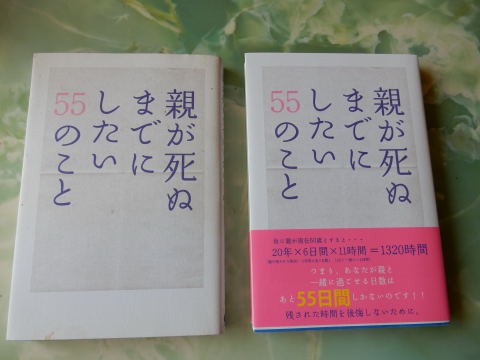 親が死ぬ
までに
したい
55のこと
親が死ぬ
までに
したい
55のこと
仮に親が現在60歳とすると・・・
20年×6日間×11時間=1320時間
つまり、あなたが親と
一緒に過ごせる日数は
あと55日間しかないのです!!
残された時間を後悔しないために。